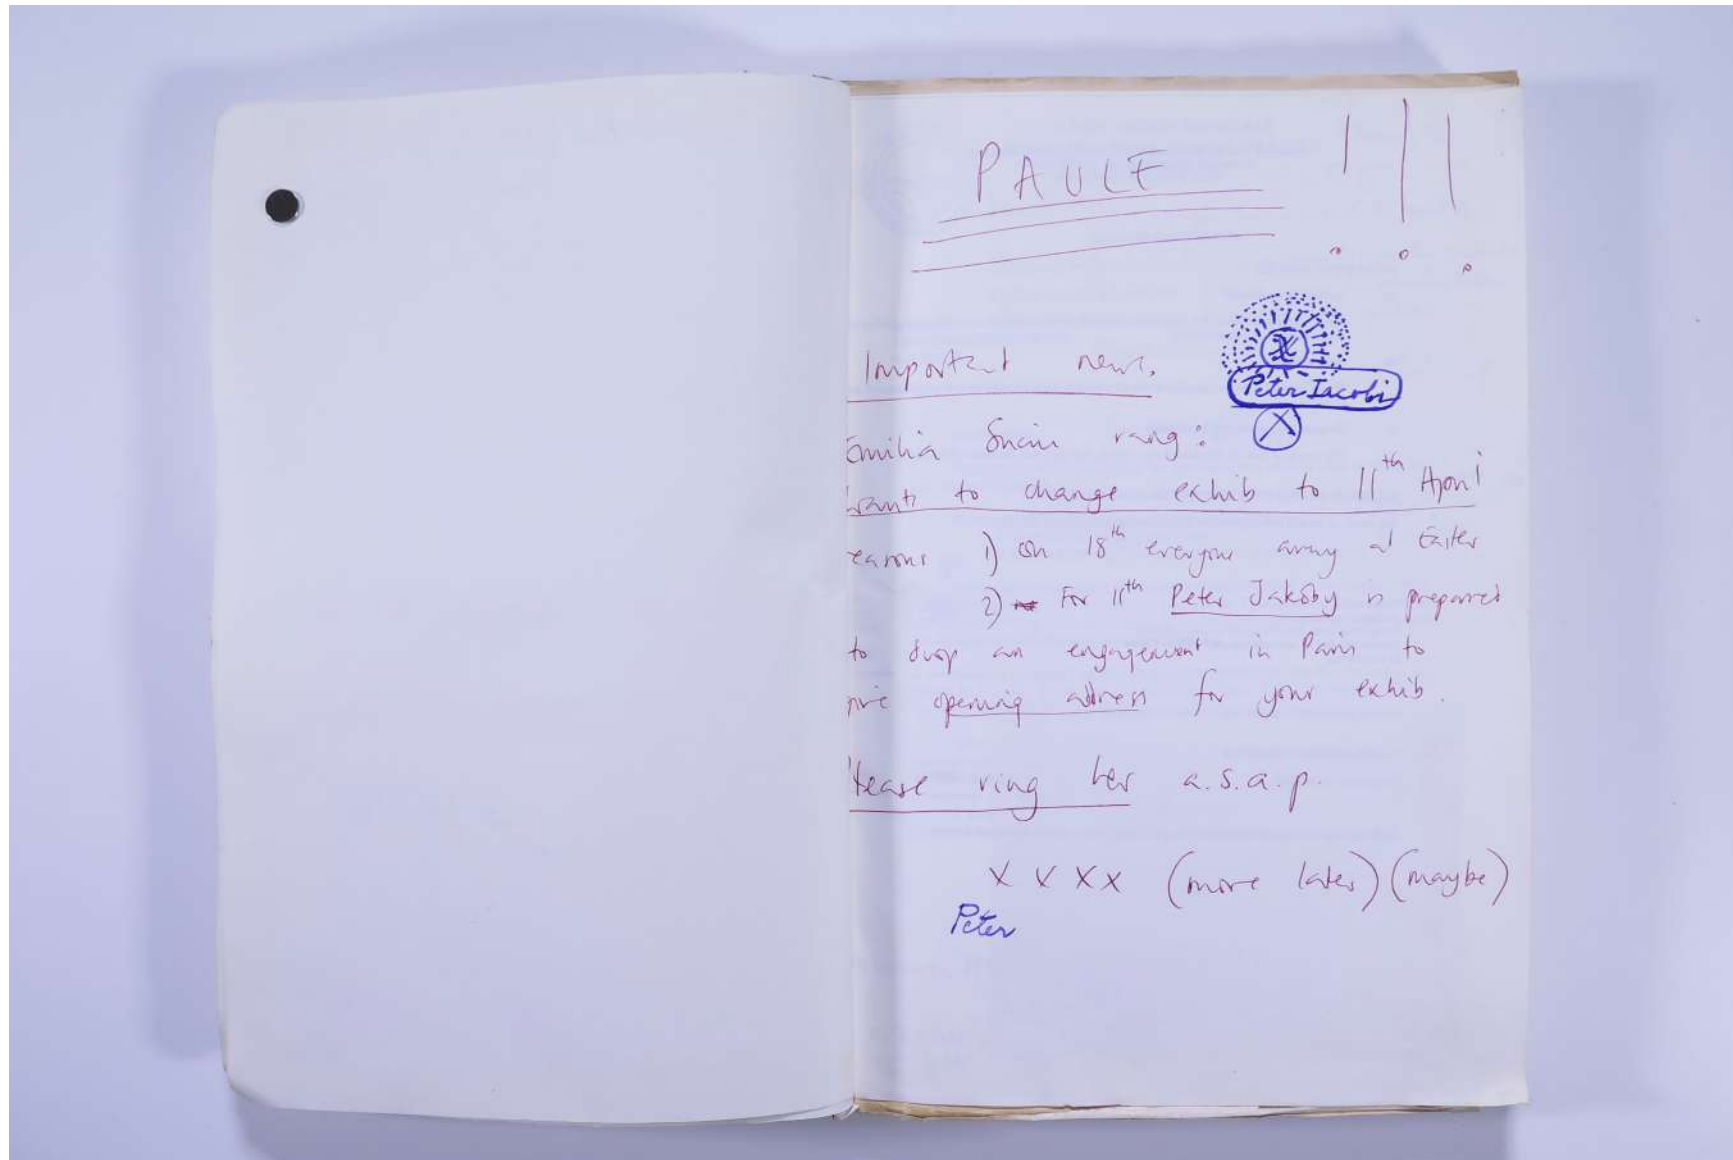 PAULE !!!
Important news.
Peter Jacobi
Emilia rang:
wants to change exhib to 11th April
reasons 1) on 18th everyone away at Easter
2) For 11th Peter Jakoby is prepared
to drop an engagement in Paris to
give opening address for your exhib.
Please ring her a.s.a.p.
x x x x (more later) (maybe)
Peter